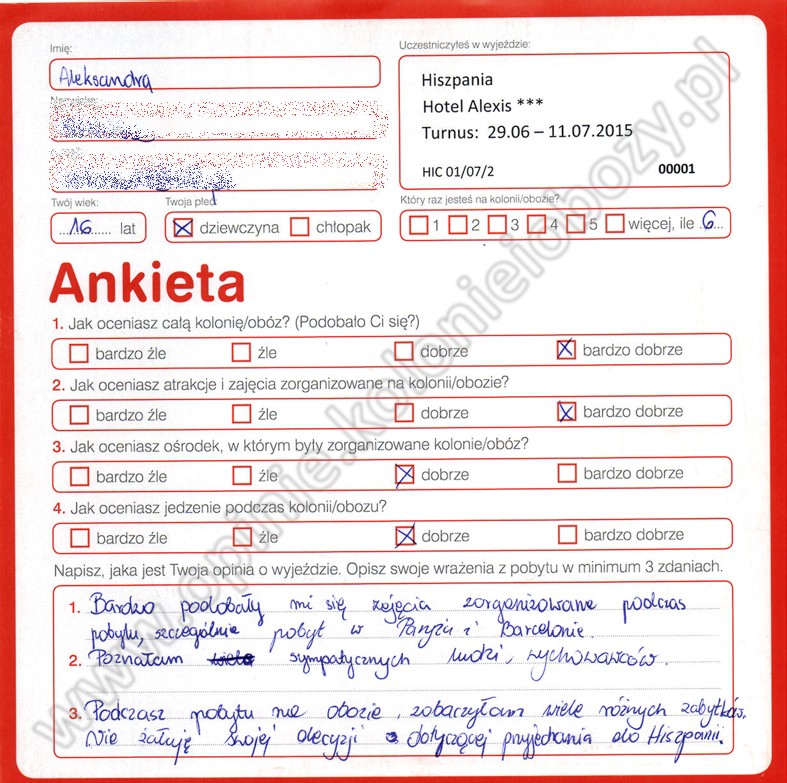 Imię:
Aleksandra
Nazwisko:
Twój wiek:
16 lat
Twoja płeć
dziewczyna chłopak
Uczestniczyłeś w wyjeździe:
Hiszpania
Hotel Alexis ***
Turnus: 29.06 – 11.07.2015
HIC 01/07/2 00001
Który raz jesteś na kolonii/obozie?
1 2 3 4 5 więcej, ile 6
Ankieta
1. Jak oceniasz całą kolonię/obóz? (Podobało Ci się?)
bardzo źle źle dobrze bardzo dobrze
2. Jak oceniasz atrakcje i zajęcia zorganizowane na kolonii/obozie?
bardzo źle źle dobrze bardzo dobrze
3. Jak oceniasz ośrodek, w którym były zorganizowane kolonie/obóz?
bardzo źle źle dobrze bardzo dobrze
4. Jak oceniasz jedzenie podczas kolonii/obozu?
bardzo źle źle dobrze bardzo dobrze
Napisz, jaka jest Twoja opinia o wyjeździe. Opisz swoje wrażenia z pobytu w minimum 3 zdaniach.
1. Bardzo podobały mi się zajęcia zorganizowane podczas
pobytu, szczególnie pobyt w Paryżu i Barcelonie.
2. Poznałam sympatycznych ludzi, wychowawców.
3. Podczasz pobytu na obozie, zobaczyłam wiele różnych zabytków.
Nie żałuję swojej decyzji dotyczącej przyjechania do Hiszpanii.
www.opinie.kolonieiobozy.pl